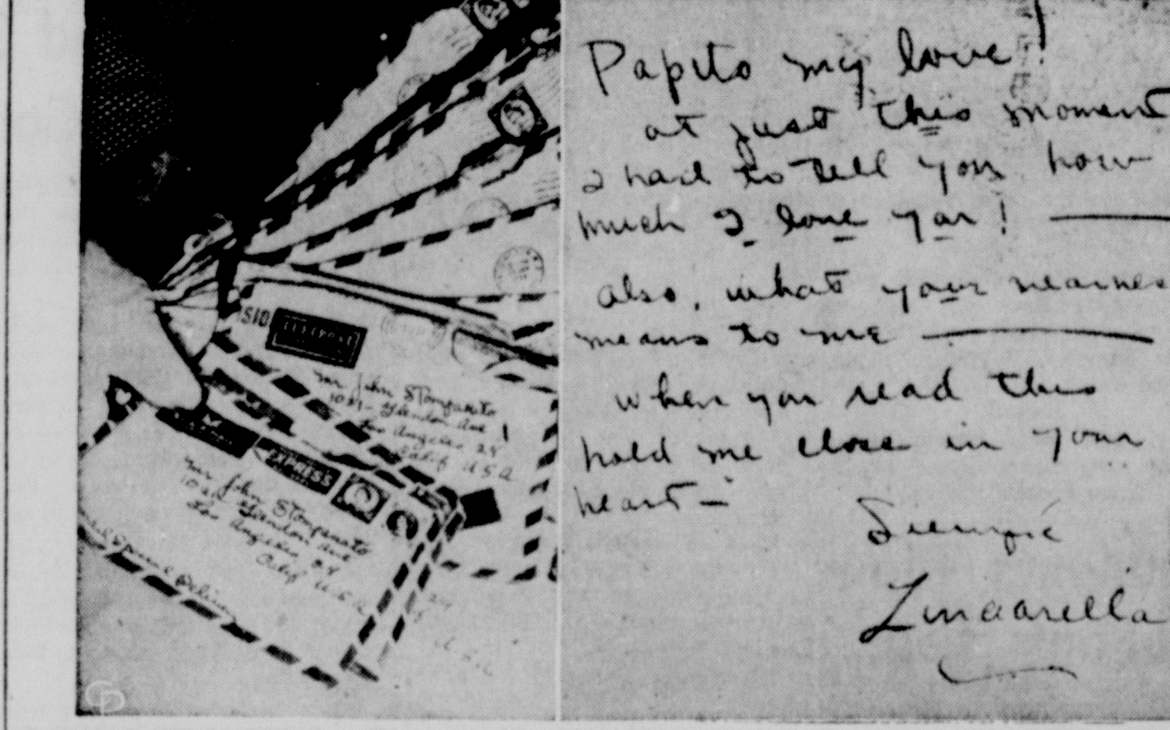 SID
Mr John Stompanato
Los Angeles 24
Calif U S A
EXPRESS
Mr John Stompanato
Los Angeles 24
Calif U.S.A
CP
Papito my love!
at just this moment
I had to tell you how
much I love you! —
also, what your nearnes
means to me —
when you read this
hold me close in your
heart —
Siempre